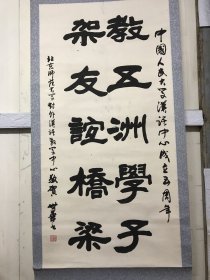 中國人民大学漢語中心成立五周年
教五洲學子
架友誼橋梁
北京師范大学對外漢語教学中心敬賀